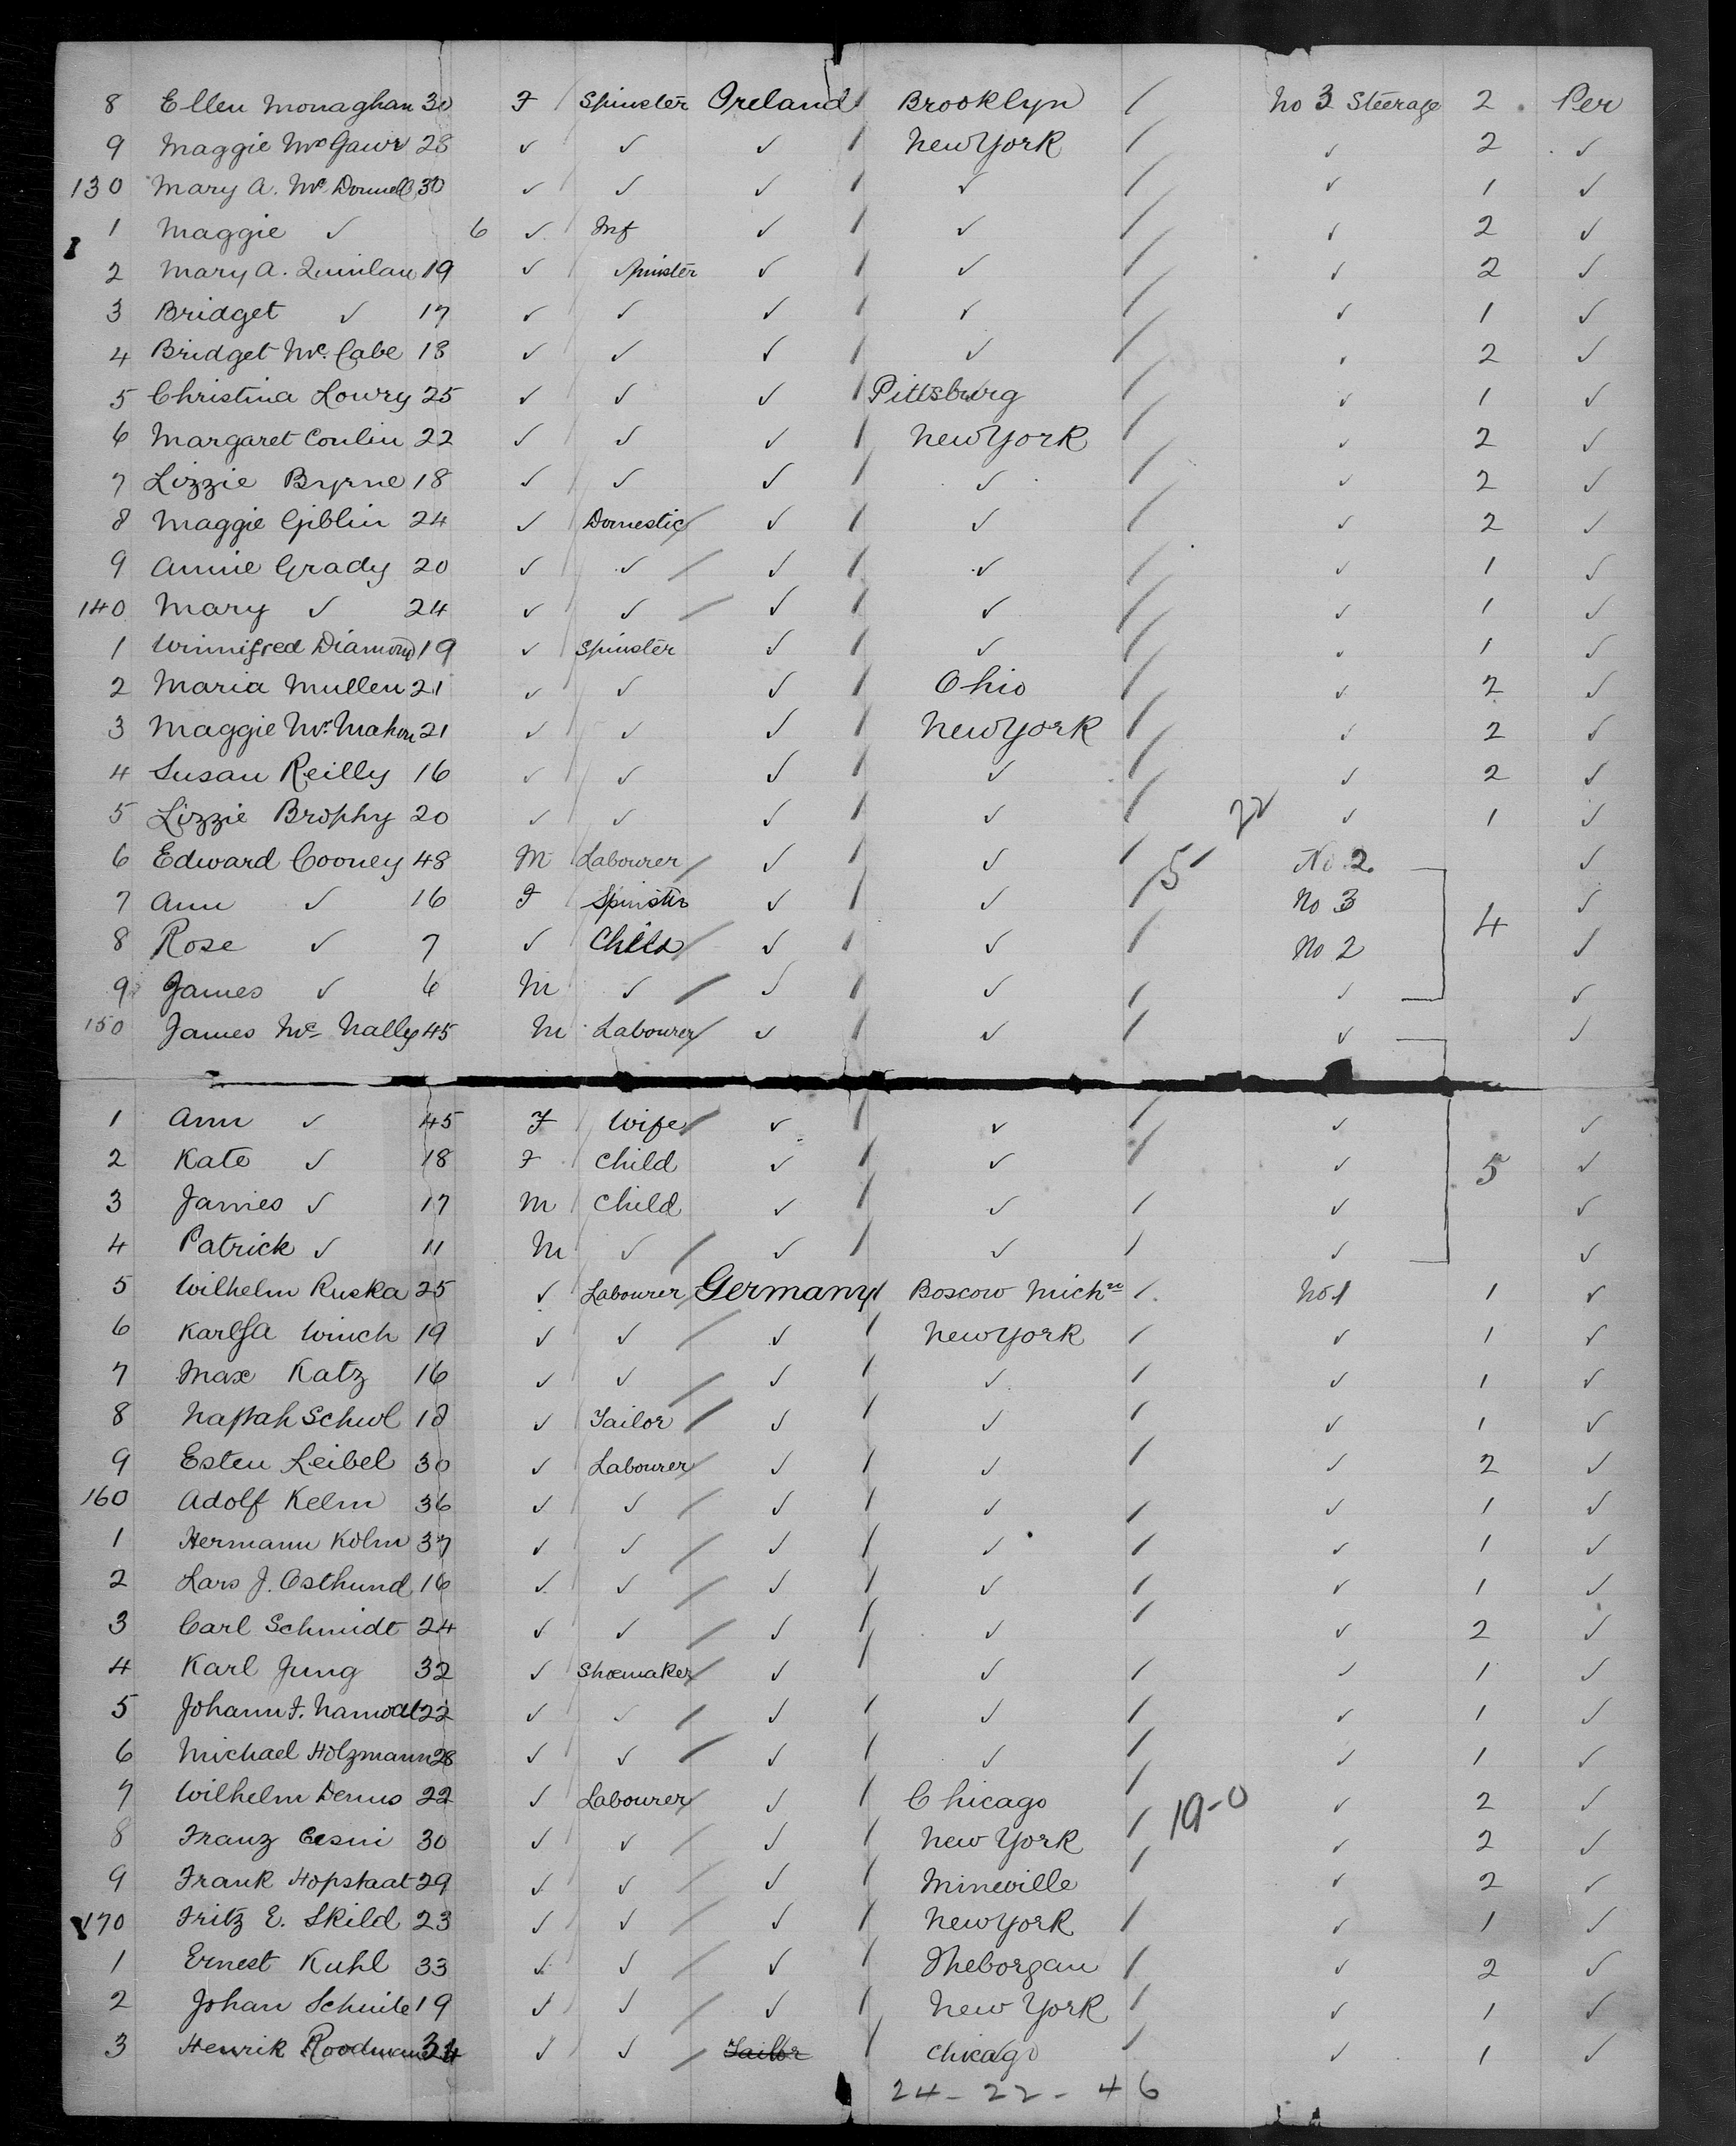 8 Ellen Monaghan 30 F Spinster Ireland / Brooklyn / No 3 Steerage 2 Per
9 Maggie McGawr 28 ✓ / ✓ ✓ / New York / ✓ 2 ✓
130 Mary A. Mc Donnell 30 ✓ / ✓ ✓ / ✓ / ✓ 1 ✓
1 Maggie ✓ 6 ✓ / Inf ✓ / ✓ / ✓ 2 ✓
2 Mary A. Quinlan 19 ✓ / Spinster ✓ / ✓ / ✓ 2 ✓
3 Bridget ✓ 17 ✓ / ✓ ✓ / ✓ / ✓ 1 ✓
4 Bridget Mc. Cabe 18 ✓ / ✓ ✓ / ✓ / ✓ 2 ✓
5 Christina Lowry 25 ✓ / ✓ ✓ / Pittsburg / ✓ 1 ✓
6 Margaret Conlin 22 ✓ / ✓ ✓ / New York / ✓ 2 ✓
7 Lizzie Byrne 18 ✓ / ✓ ✓ / ✓ / ✓ 2 ✓
8 Maggie Giblin 24 ✓ Domestic / ✓ / ✓ / ✓ 2 ✓
9 Annie Grady 20 ✓ ✓ / ✓ / ✓ / ✓ 1 ✓
140 Mary ✓ 24 ✓ / ✓ / ✓ / ✓ / ✓ 1 ✓
1 Winnifred Diamond 19 ✓ Spinster ✓ / ✓ / ✓ 1 ✓
2 Maria Mullen 21 ✓ / ✓ ✓ / Ohio / ✓ 2 ✓
3 Maggie Mc. Mahon 21 ✓ / ✓ ✓ / New York / ✓ 2 ✓
4 Susan Reilly 16 ✓ / ✓ ✓ / ✓ / ✓ 2 ✓
5 Lizzie Brophy 20 ✓ / ✓ ✓ / ✓ / 22 ✓ 1 ✓
6 Edward Cooney 48 M Labourer / ✓ / ✓ / 5 No 2 ✓
7 Ann ✓ 16 F / Spinster ✓ / ✓ / No 3 4 ✓
8 Rose ✓ 7 ✓ / Child / ✓ / ✓ / No 2 ✓
9 James ✓ 6 M ✓ / ✓ / ✓ / ✓ ✓
150 James Mc Nally 45 M Labourer / ✓ / ✓ / ✓ ✓
1 Ann ✓ 45 F / Wife / ✓ / ✓ / ✓ ✓
2 Kate ✓ 18 F / Child ✓ / ✓ / ✓ 5 ✓
3 James ✓ 17 M / Child ✓ / ✓ / ✓ ✓
4 Patrick ✓ 11 M / ✓ / ✓ / ✓ / ✓ ✓
5 Wilhelm Ruska 25 ✓ / Labourer / Germany / Boscow Mich / No 1 1 ✓
6 Winch 19 ✓ / ✓ / ✓ / New York / ✓ 1 ✓
7 Max Katz 16 ✓ / ✓ / ✓ / ✓ / ✓ 1 ✓
8 Schwl 18 ✓ / Tailor / ✓ / ✓ / ✓ 1 ✓
9 Esten Leibel 30 ✓ / Labourer / ✓ / ✓ / ✓ 2 ✓
160 Adolf Kelm 36 ✓ / ✓ / ✓ / ✓ / ✓ 1 ✓
1 Hermann Kolm 37 ✓ / ✓ / ✓ / ✓ / ✓ 1 ✓
2 Lars J. Osthund 16 ✓ / ✓ / ✓ / ✓ / ✓ 1 ✓
3 Carl Schmidt 24 ✓ / ✓ / ✓ / ✓ / ✓ 2 ✓
4 Karl Jung 32 ✓ Shoemaker / ✓ / ✓ / ✓ 1 ✓
5 Johann F. 22 ✓ / ✓ / ✓ / ✓ / ✓ 1 ✓
6 Michael Holzmann 28 ✓ / ✓ / ✓ / ✓ / ✓ 1 ✓
7 Wilhelm Demus 22 ✓ / Labourer / ✓ / Chicago / 19-0 ✓ 2 ✓
8 Franz 30 ✓ / ✓ / ✓ / New York / ✓ 2 ✓
9 Frank Hopstaat 29 ✓ / ✓ / ✓ / Mineville / ✓ 2 ✓
170 Fritz E. Skild 23 ✓ / ✓ / ✓ / New York / ✓ 1 ✓
1 Ernest Kuhl 33 ✓ / ✓ / ✓ / Theborgan / ✓ 2 ✓
2 Johan Schuile 19 ✓ / ✓ / ✓ / New York / ✓ 1 ✓
3 Henrik Roodman 34 ✓ / ✓ / Tailor / Chicago / ✓ 1 ✓
24 - 22 - 46